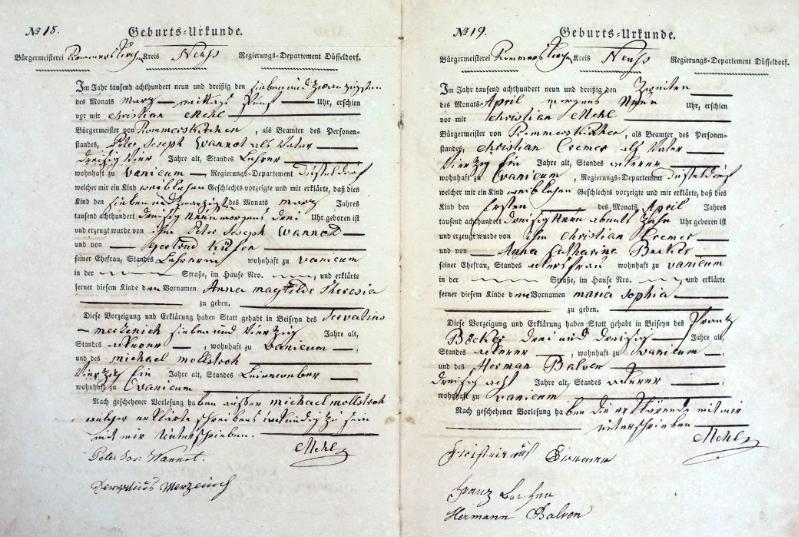 No 18. Geburts-Urkunde.
Bürgermeisterei Rommerskirchen Kreis Neuss Regierungs-Departement Düsseldorf.
Im Jahr tausend achthundert neun und dreißig den sieben und zwanzigsten
des Monats März mittags fünf Uhr, erschien
vor mir Christian Mehl
Bürgermeister von Rommerskirchen, als Beamter des Personen-
standes, Peter Joseph Vannot als Vater
dreißig vier Jahre alt, Standes Lehrer
wohnhaft zu Vanicum Regierungs-Departement Düsseldorf
welcher mir ein Kind weiblichen Geschlechts vorzeigte und mir erklärte, daß dies
Kind den sieben und zwanzigsten des Monats März Jahres
tausend achthundert dreißig neun morgens drei Uhr geboren ist
und erzeugt wurde von ihm Peter Joseph Vannot
und von Gertrud
seiner Ehefrau, Standes Lehrerin wohnhaft zu Vanicum
in der Straße, im Hause Nro. und erklärte
ferner diesem Kinde den Vornamen Anna Magtilde Theresia
zu geben.
Diese Vorzeigung und Erklärung haben Statt gehabt in Beiseyn des
Merzenich sieben und vierzig Jahre alt,
Standes Ackerer, wohnhaft zu Vanicum
und des Michael Mollstroh
vierzig ein Jahre alt, Standes Leinenweber
wohnhaft zu Evanicum
Nach geschehener Vorlesung haben außer Michael Mollstroh
welcher erklärte schreibens unkundig zu sein
mit mir unterschrieben.
Mehl
Peter Jos. Vannot.
Merzenich
No 19. Geburts-Urkunde.
Bürgermeisterei Rommerskirchen Kreis Neuss Regierungs-Departement Düsseldorf.
Im Jahr tausend achthundert neun und dreißig den zweiten
des Monats April morgens neun Uhr, erschien
vor mir Christian Mehl
Bürgermeister von Rommerskirchen, als Beamter des Personen-
standes, Christian Cremer als Vater
vierzig ein Jahre alt, Standes Ackerer
wohnhaft zu Evanicum, Regierungs-Departement Düsseldorf
welcher mir ein Kind weiblichen Geschlechts vorzeigte und mir erklärte, daß dies
Kind den ersten des Monats April Jahres
tausend achthundert dreißig neun abends zehn Uhr geboren ist
und erzeugt wurde von ihm Christian Cremer
und von Anna Catharina Becker
seiner Ehefrau, Standes Ackersfrau wohnhaft zu Vanicum
in der Straße, im Hause Nro. und erklärte
ferner diesem Kinde den Vornamen Maria Sophia
zu geben.
Diese Vorzeigung und Erklärung haben Statt gehabt in Beiseyn des Frantz
Becker drei und dreißig Jahre alt,
Standes Ackerer, wohnhaft zu Vanicum
und des Herman Balven
dreißig acht Jahre alt, Standes Ackerer
wohnhaft zu Evanicum
Nach geschehener Vorlesung haben die erklärende mit mir
unterschrieben
Mehl
Franz
Hermann Balven